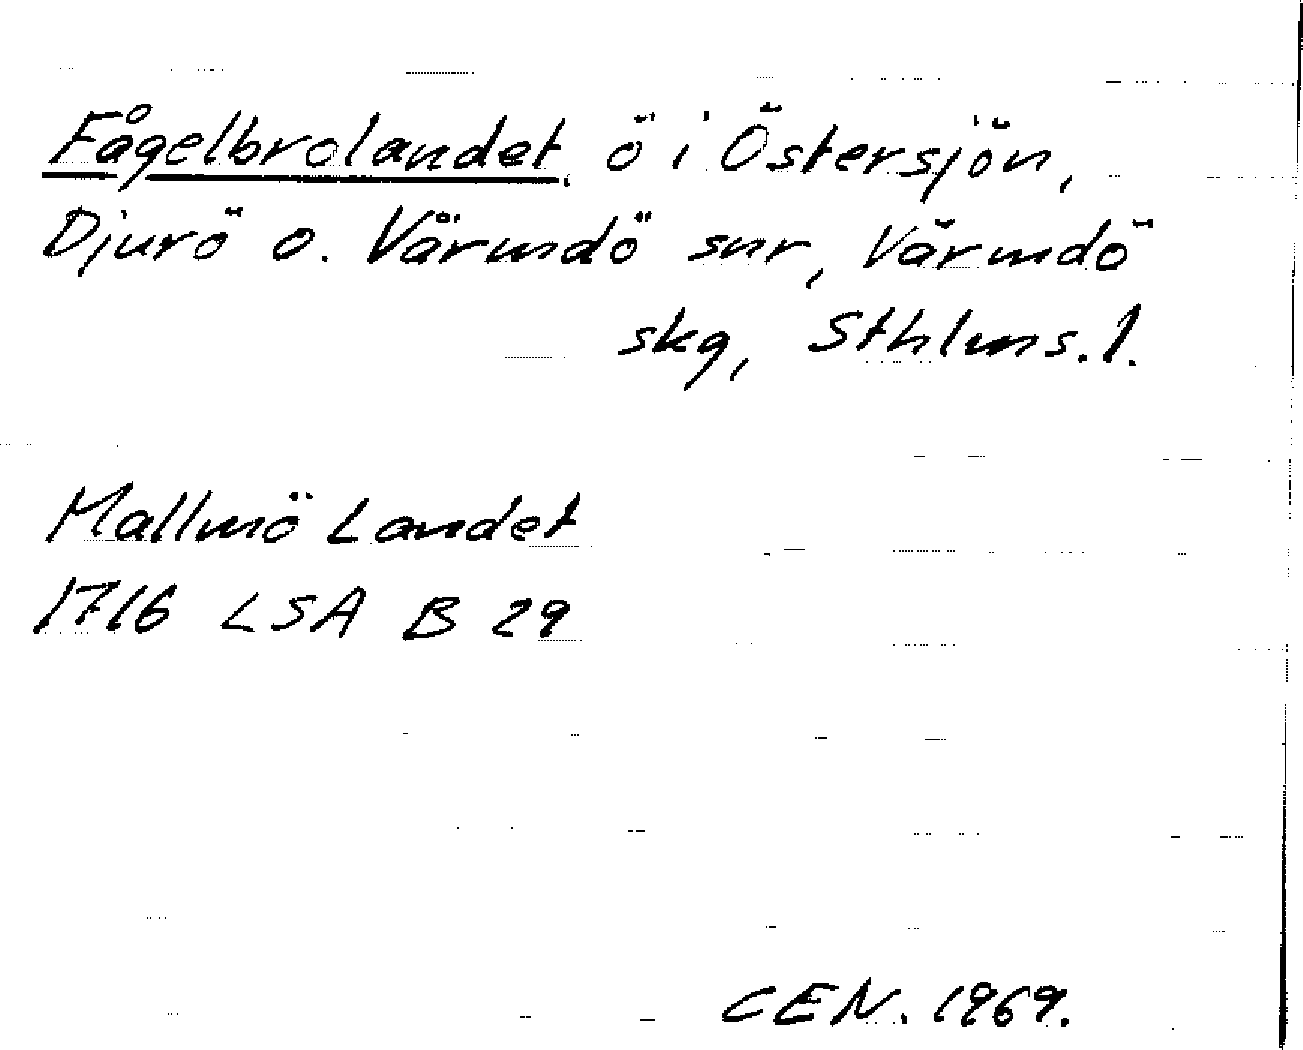 Fågelbrolandet, ö i Östersjön,
Djurö o. Värmdö snr, Värmdö
skg, Sthlms. l.
Mallmö Landet
1716 LSA B 29
CEN. 1969.